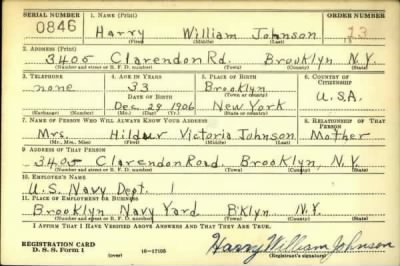 SERIAL NUMBER 1. NAME (Print) ORDER NUMBER
0846 Harry William Johnson 13
(First) (Middle) (Last)
2. ADDRESS (Print)
3405 Clarendon Rd. Brooklyn N.Y.
(Number and street or R. F. D. number) (Town) (County) (State)
3. TELEPHONE 4. AGE IN YEARS 5. PLACE OF BIRTH 6. COUNTRY OF CITIZENSHIP
none 33 Brooklyn
DATE OF BIRTH (Town or county) U.S.A.
Dec. 29 1906 New York
(Exchange) (Number) (Mo.) (Day) (Yr.) (State or country)
7. NAME OF PERSON WHO WILL ALWAYS KNOW YOUR ADDRESS 8. RELATIONSHIP OF THAT PERSON
Mrs. Hildur Victoria Johnson Mother
(Mr., Mrs., Miss) (First) (Middle) (Last)
9. ADDRESS OF THAT PERSON
3405 Clarendon Road. Brooklyn, N.Y.
(Number and street or R. F. D. number) (Town) (County) (State)
10. EMPLOYER'S NAME
U.S. Navy Dept. 1
11. PLACE OF EMPLOYMENT OR BUSINESS
Brooklyn Navy Yard B'klyn N.Y.
(Number and street or R. F. D. number) (Town) (County) (State)
I AFFIRM THAT I HAVE VERIFIED ABOVE ANSWERS AND THAT THEY ARE TRUE.
REGISTRATION CARD
D. S. S. Form 1 (over) 16-17105 Harry William Johnson
(Registrant's signature)